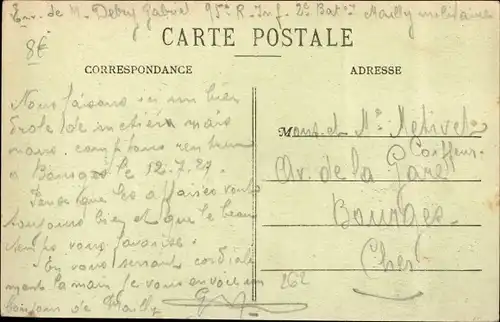 Env. de M. Debry Gabriel 95e R. Inf. 3e Bat. Mailly militaire
8€
CARTE POSTALE
CORRESPONDANCE
ADRESSE
Nous faisons ici un bien
drole de métiers mais
nous comptons rentrer
a Bourges le 12-7-27.
J'espère que les affaires vont
toujours bien et que le beau
temps vous favorise.
En vous serrant cordiale
ment la main je vous envoie un
bonjour de Mailly
M
Mons et Me Metivet
Coiffeur
Av. de la Gare
Bourges
Cher
262